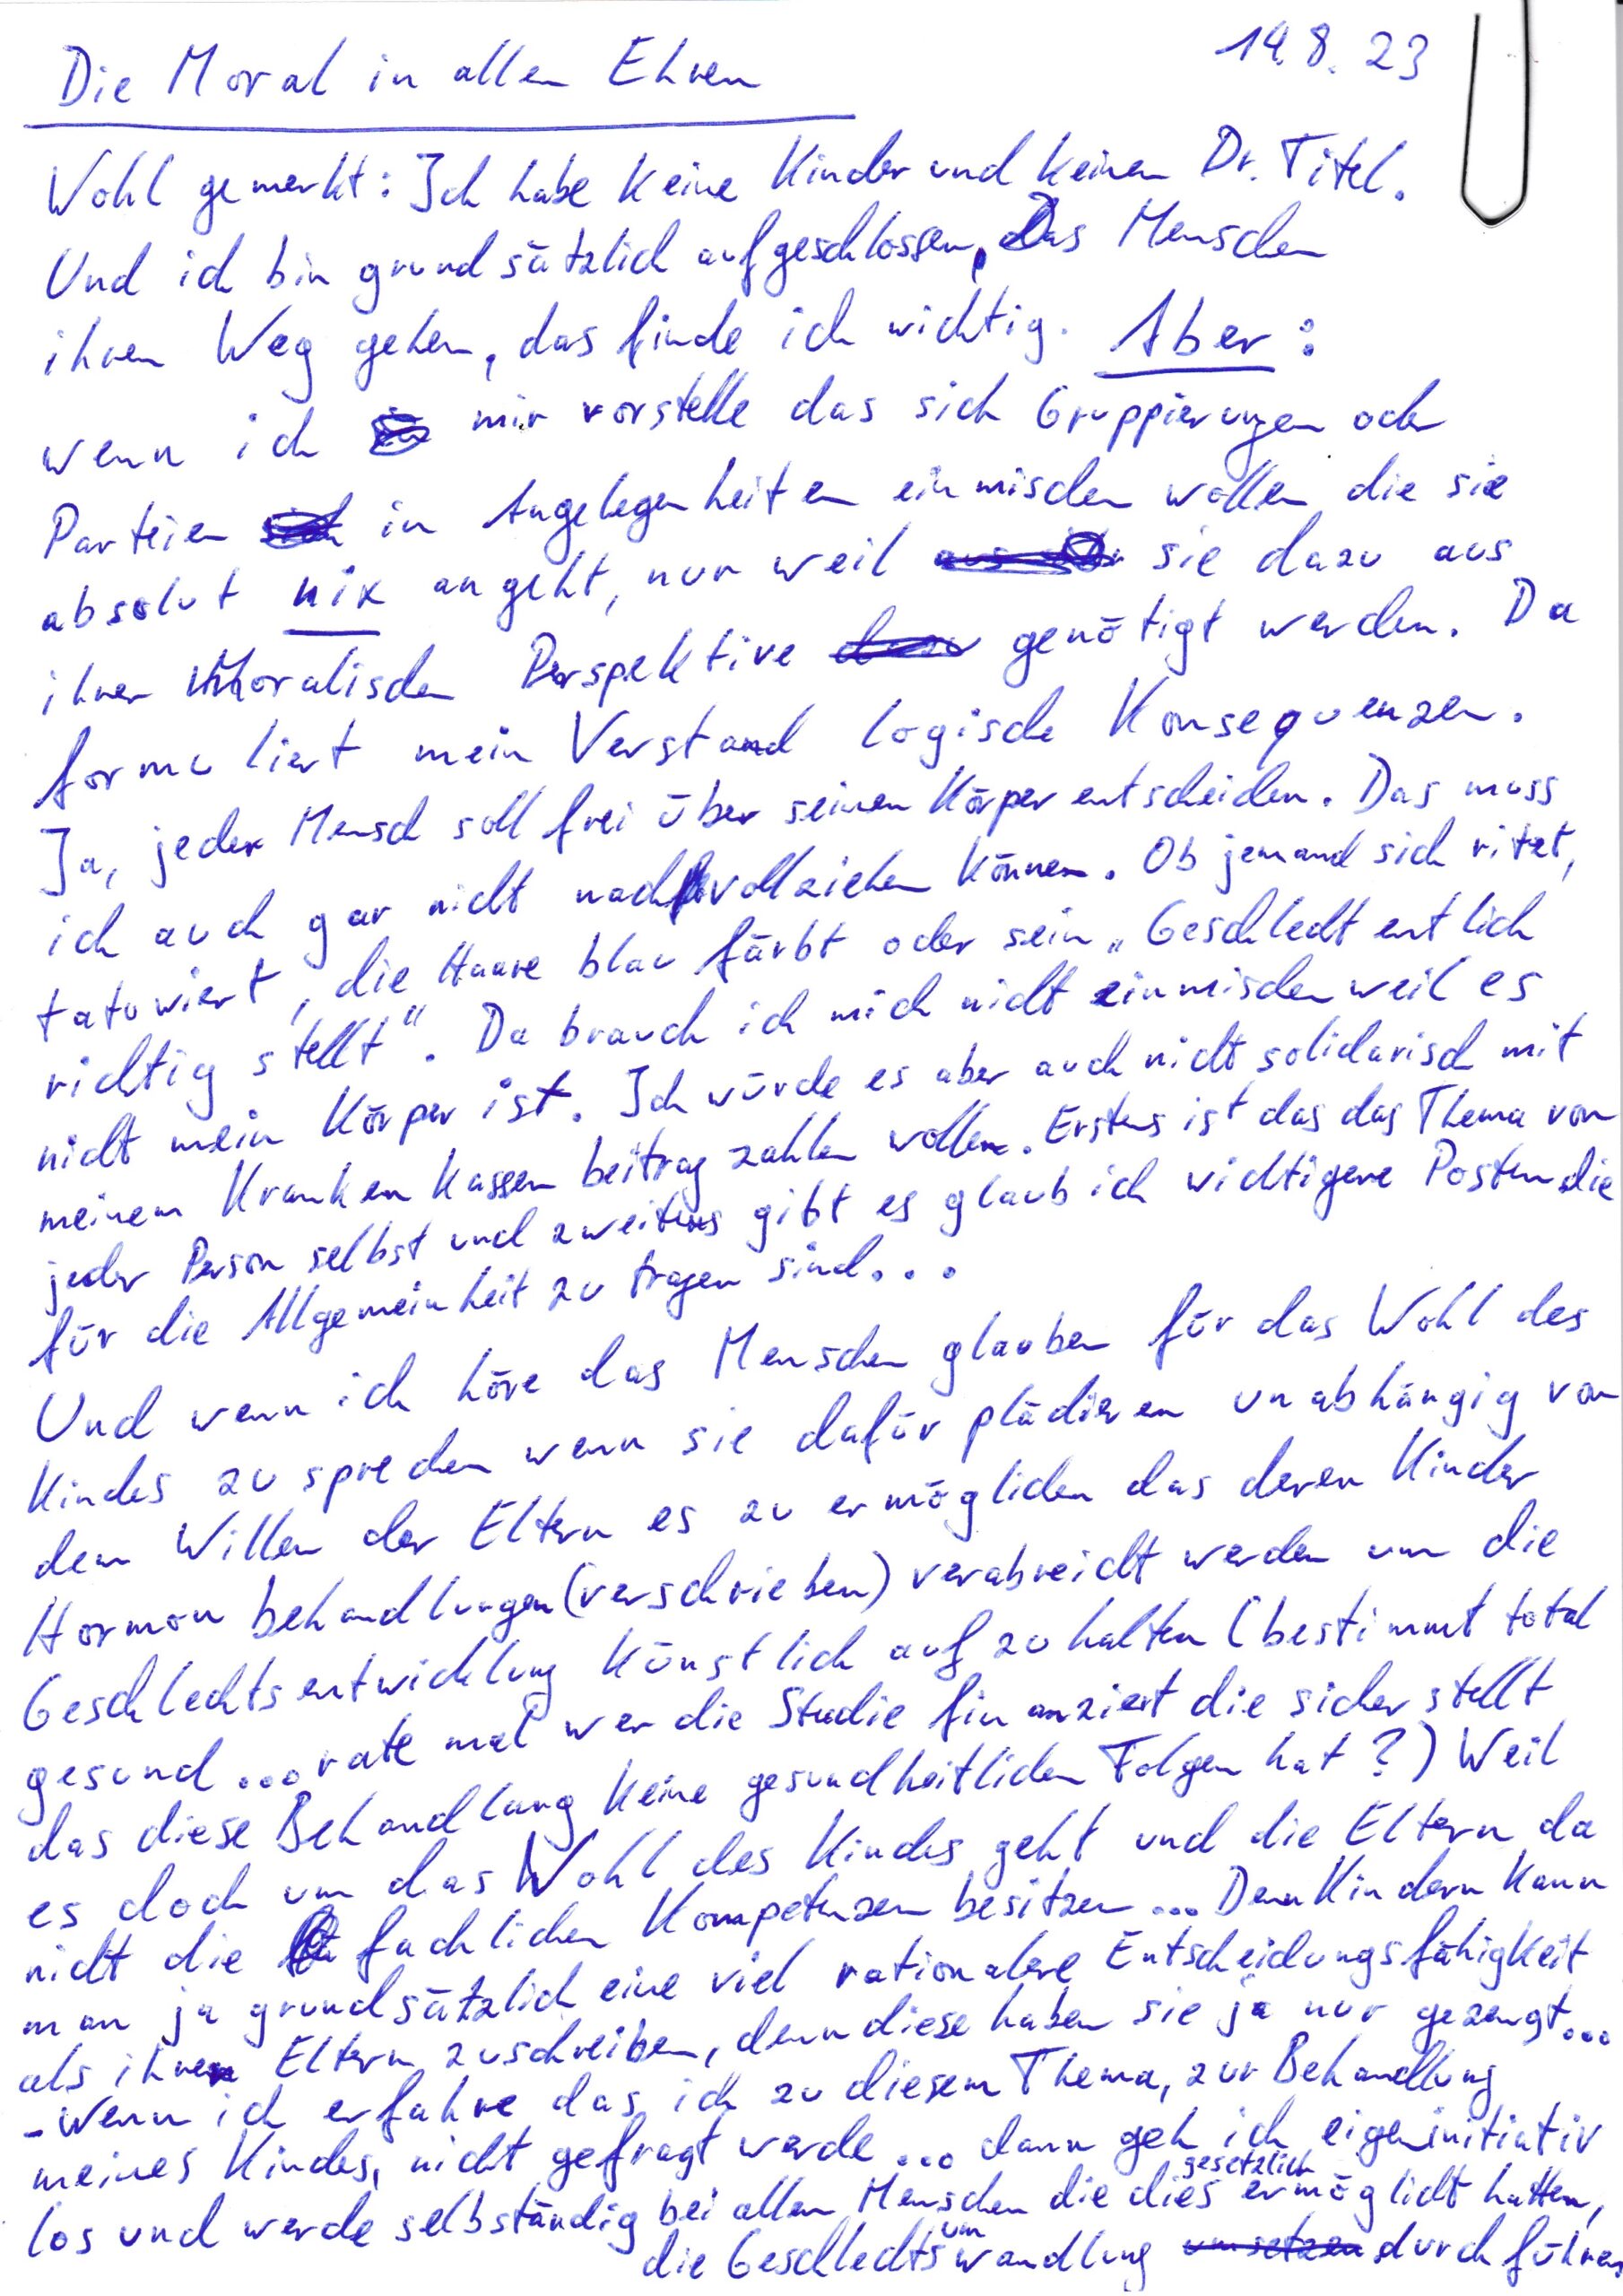 Die Moral in allen Ehren
14.8.23
Wohl gemerkt: Ich habe keine Kinder und keinen Dr. Titel.
Und ich bin grundsätzlich aufgeschlossen, Das Menschen
ihren Weg gehen, das finde ich wichtig. Aber:
wenn ich mir vorstelle das sich Gruppierungen oder
Parteien in Angelegenheiten einmischen wollen die sie
absolut nix angeht, nur weil sie dazu aus
ihrer Moralischen Perspektive genötigt werden. Da
formuliert mein Verstand logische Konsequenzen.
Ja, jeder Mensch soll frei über seinen Körper entscheiden. Das muss
ich auch gar nicht nachvollziehen können. Ob jemand sich ritzt,
tatowiert, die Haare blau färbt oder sein „Geschlecht entlich
richtig stellt". Da brauch ich mich nicht einmischen weil es
nicht mein Körper ist. Ich würde es aber auch nicht solidarisch mit
meinem Krankenkassenbeitrag zahlen wollen. Erstens ist das das Thema von
jeder Person selbst und zweitens gibt es glaub ich wichtigere Posten die
für die Allgemeinheit zu tragen sind...
Und wenn ich höre das Menschen glauben für das Wohl des
Kindes zu sprechen wenn sie dafür plädieren unabhängig von
dem Willen der Eltern es zu ermöglichen das deren Kinder
Hormonbehandlungen (verschrieben) verabreicht werden um die
Geschlechtsentwicklung künstlich aufzuhalten (bestimmt total
gesund... rate mal wer die Studie finanziert die sicher stellt
das diese Behandlung keine gesundheitlichen Folgen hat?) Weil
es doch um das Wohl des Kindes geht und die Eltern da
nicht die fachlichen Kompetenzen besitzen... Denn Kindern kann
man ja grundsätzlich eine viel rationalere Entscheidungsfähigkeit
als ihren Eltern zuschreiben, denn diese haben sie ja nur gezeugt...
- Wenn ich erfahre das ich zu diesem Thema, zur Behandlung
meines Kindes, nicht gefragt werde... dann geh ich eigeninitiativ
los und werde selbständig bei allen Menschen die dies gesetzlich ermöglicht hatten,
die Geschlechtsumwandlung durchführen